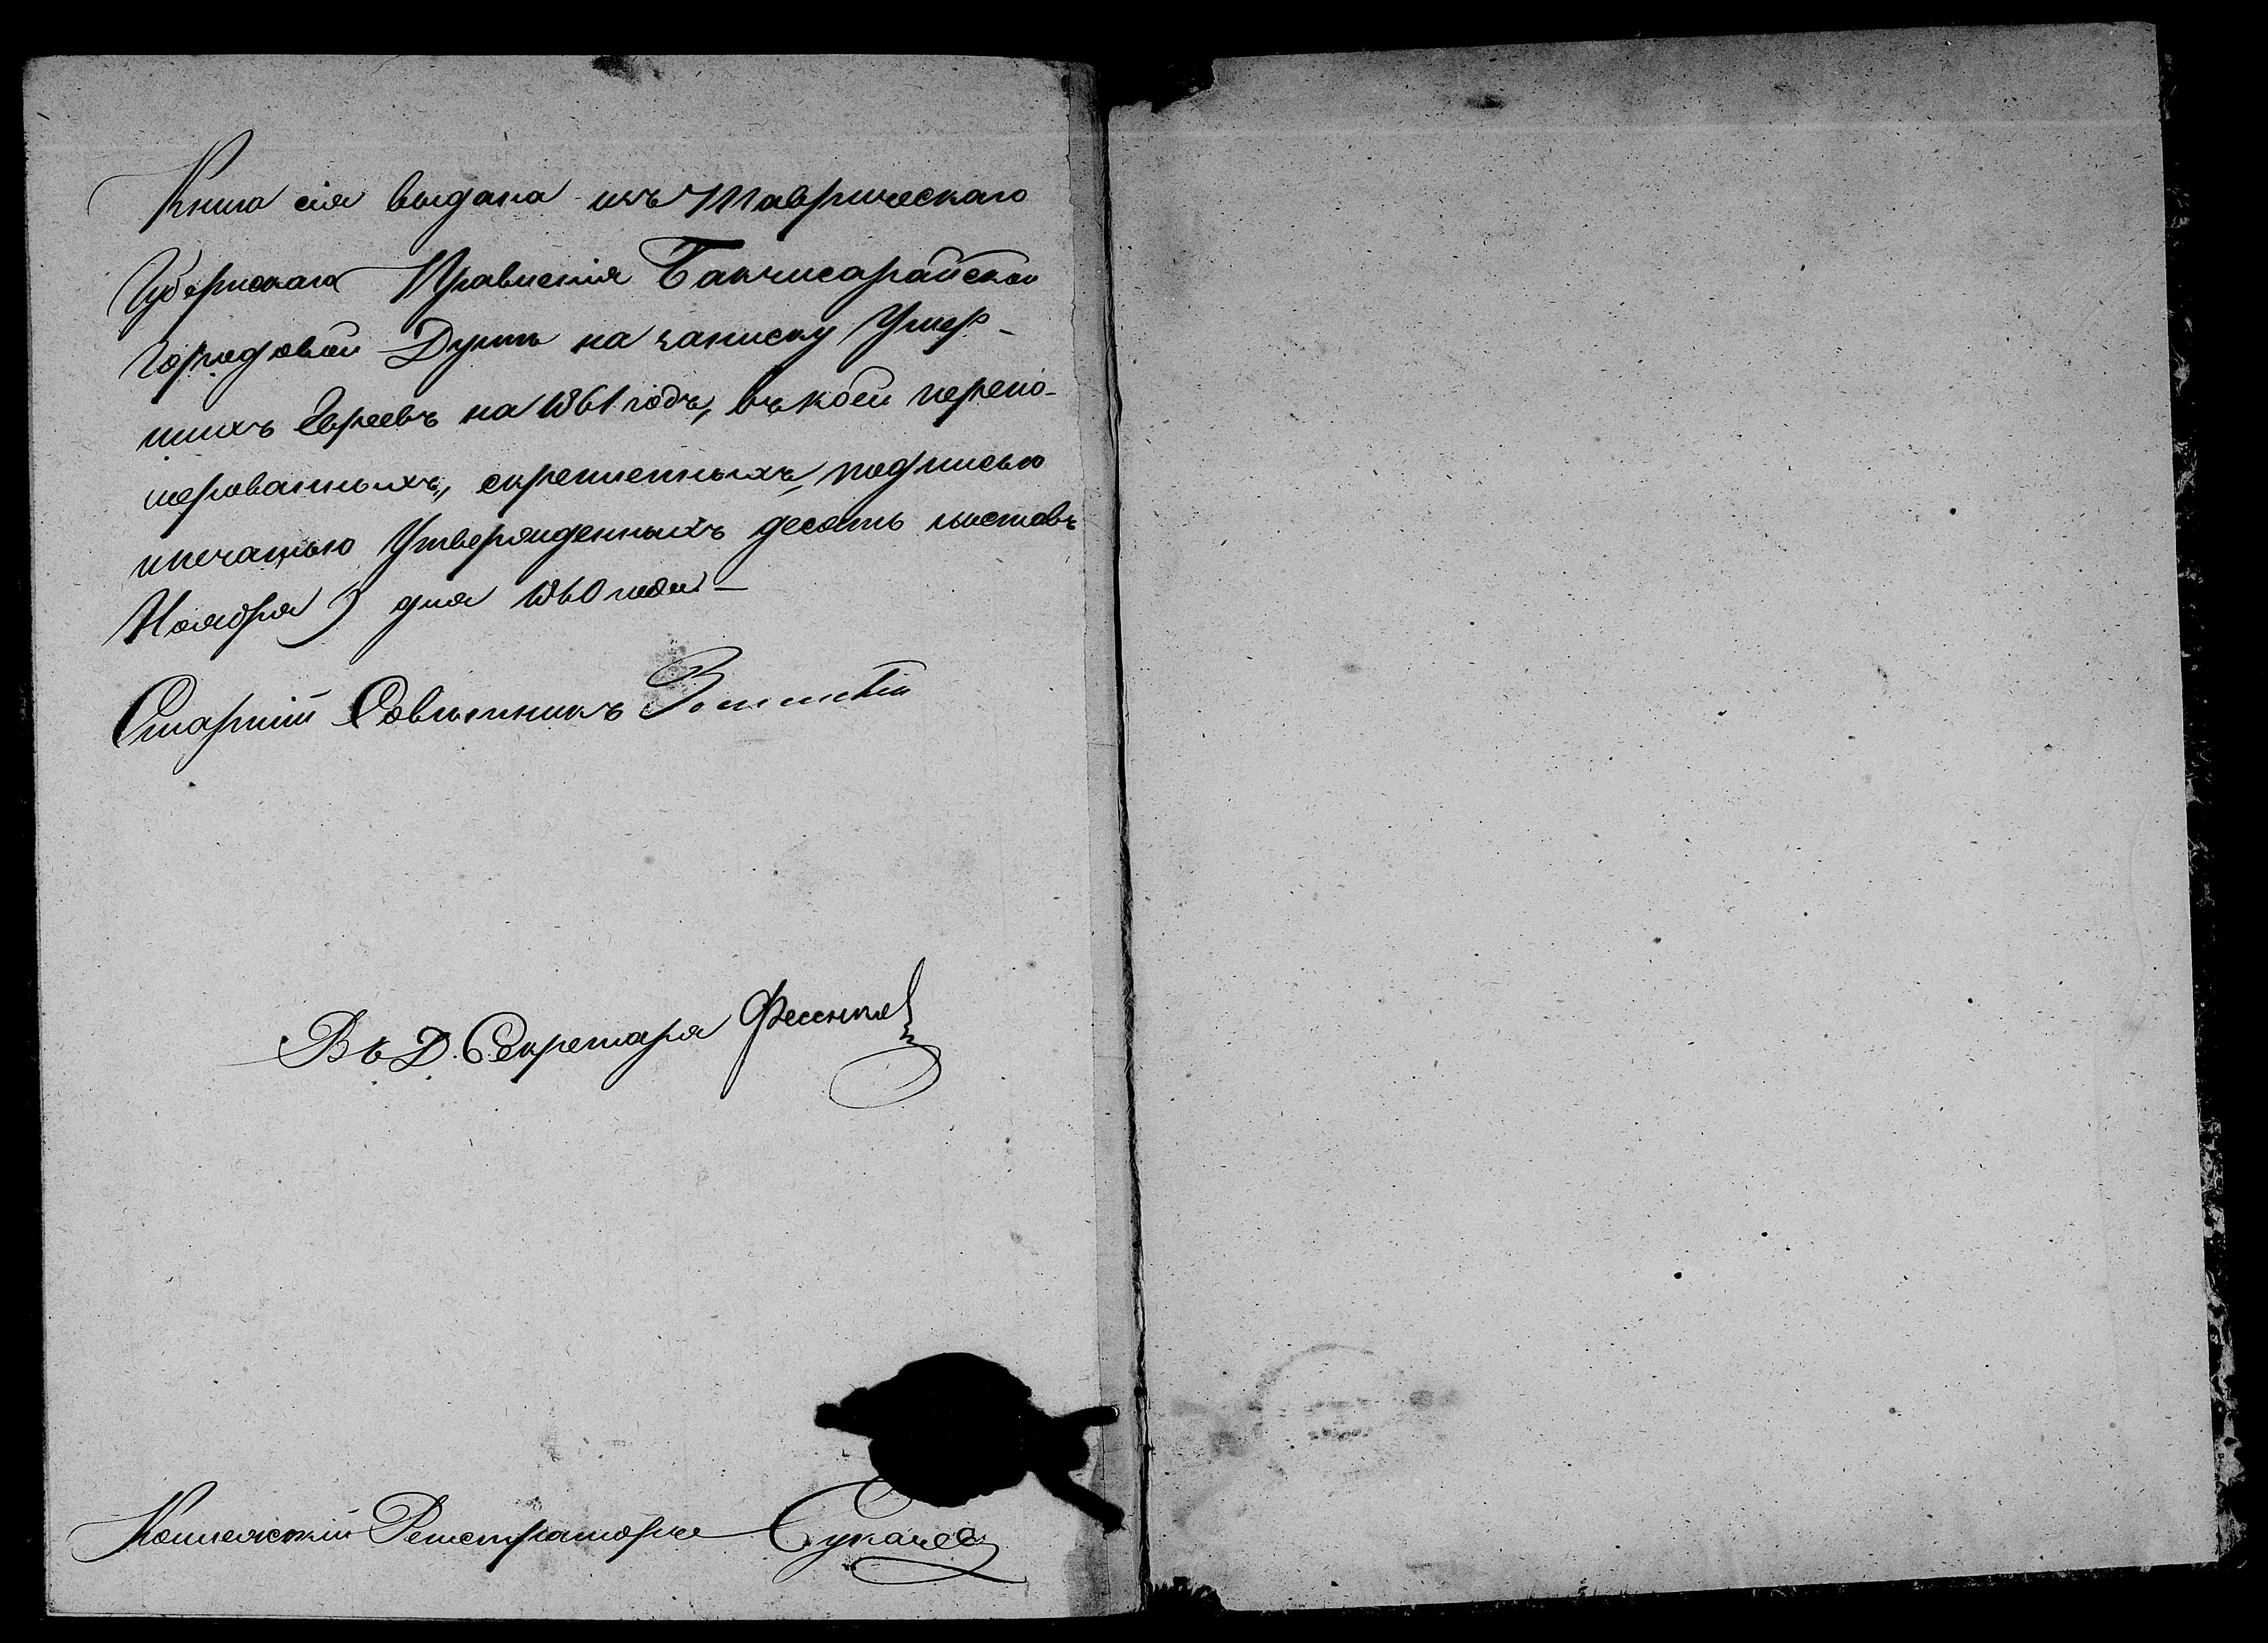 Книга сія выдана изъ Таврическаго
Губернскаго Правленія Бакчисарайской
Городовой Думѣ на записку Умер-
шихъ Евреевъ на 1861 годъ, въ коей перено-
мерованныхъ, скрепленныхъ, подписью
и печатью Утвержденныхъ десять листовъ
Ноября 9 дня 1860 года —
Старшій Совѣтникъ
Въ Д. Секретаря Фесенко
Коллежскій Регистраторъ Сукачев